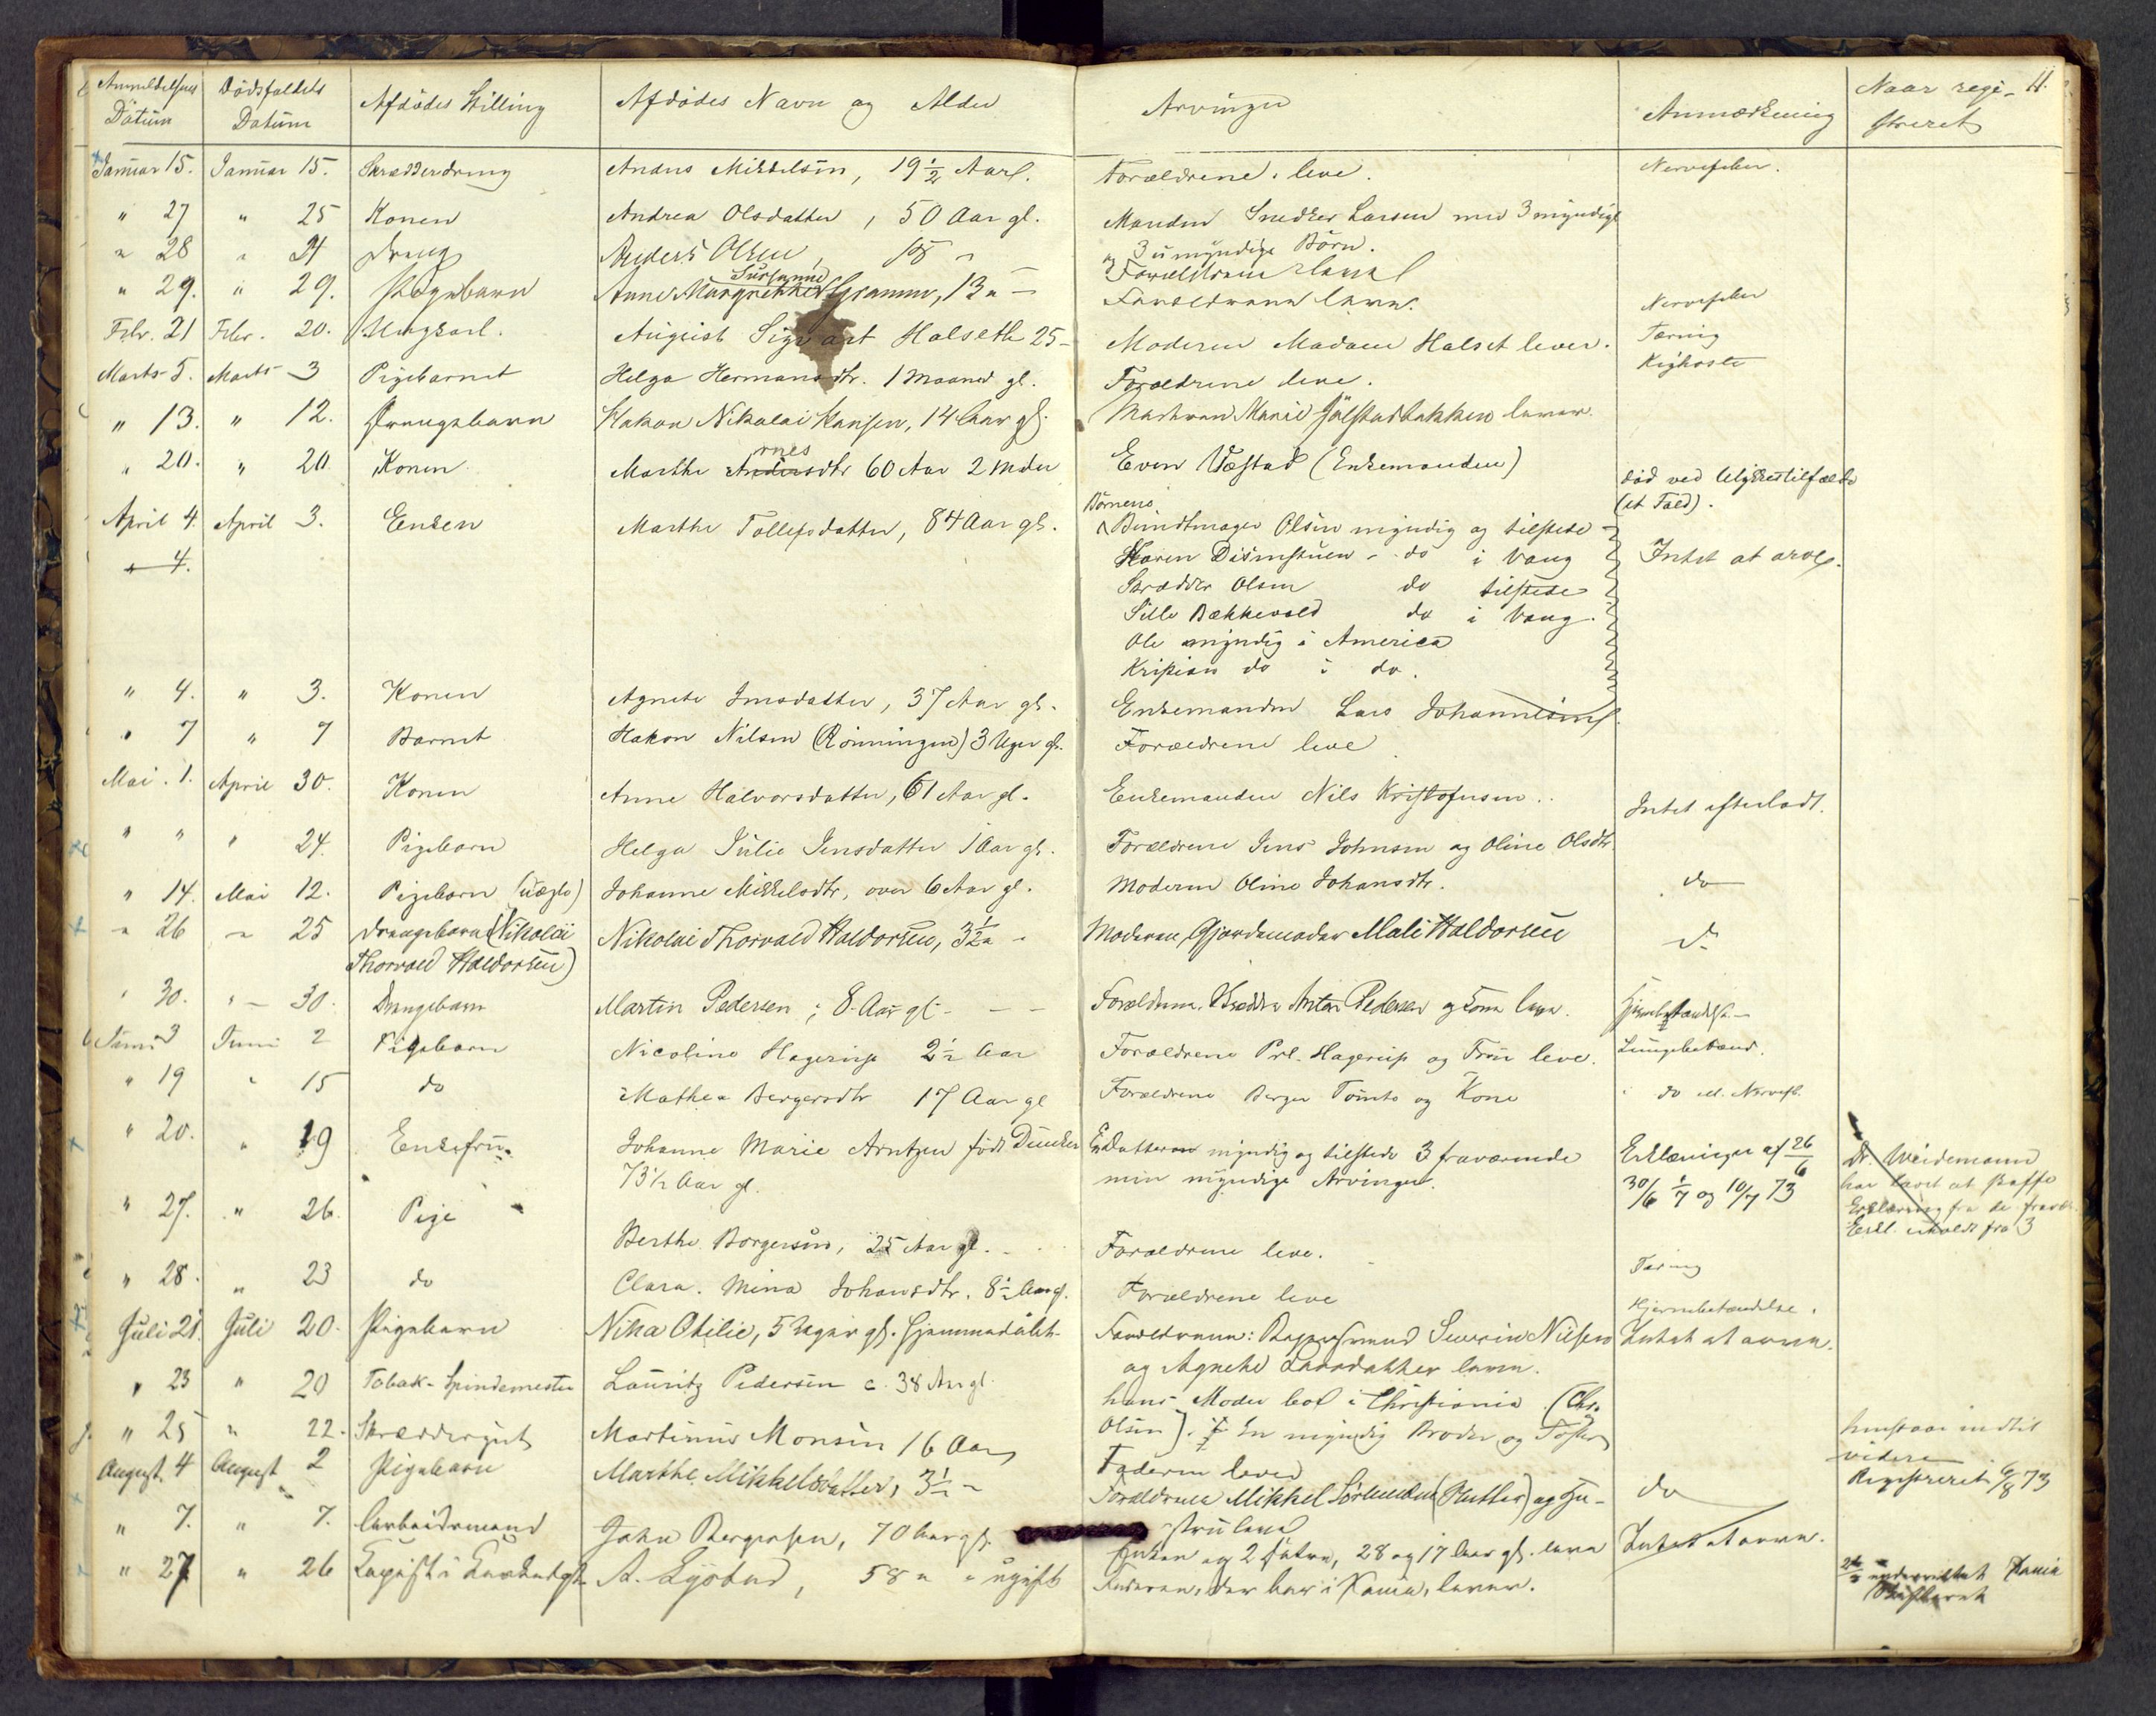 Anmeldelsens Datum Dödsfaldets Datum Afdødes Stilling Afdødes Navn og Alder Arvinger Anmærkning Naar regi- streret 11.
Januar 15. Januar 15. Skrædderdreng Anders Mikkelsen, 19 1/2 Aar Forældrene leve. Nervefeber.
" 27 " 25 Konen Andrea Olsdatter, 50 Aar gl. Manden Snedker Larsen med 3 myndige
og 3 umyndige Børn.
" 28 " 21 Dreng Anders Olsen, 18 " Forældrene leve
" 29. " 29. Pigebarn Anne Margrethe Susanne Gramm, 13 " – Forældrene leve. Nervefeber
Febr. 21 Febr. 20. Ungkarl. August Sigvart Halseth 25 – Moderen Madam Halset lever. Tæring
Marts 5. Marts 3 Pigebarnet Helga Hermansdtr. 1 Maaned gl. Forældrene leve. Kighoste
" 13. " 12. Drengebarn Hakon Nikolai Hansen, 14 Aar gl. Moderen Marie Julstadbakken lever.
" 20. " 20 Konen Marthe Andersdtr ornes 60 Aar 2 Mdr Even Væstad (Enkemanden) død ved Ulykkestilfælde
(et Fald).
April 4. April 3. Enken Marthe Tollefsdatter, 84 Aar gl. Børnene
Bundtmager Olsen myndig og tilstede
" 4. Karen Disenstuen " do i Vang Intet at arve.
Skrædder Olsen do tilstede
Sille Bækkevold do i Vang.
Ole myndig i America
Kristian do i do.
" 4. " 3. Konen Agnete Jensdatter, 37 Aar gl. Enkemanden Lars Johannesen
" 7 " 7 Barnet Hakon Nilsen (Rönningen) 3 Uger gl. Forældrene leve
Mai. 1. April 30. Konen Anne Halvorsdatter, 61 Aar gl. Enkemanden Nils Kristofersen. Intet efterladt.
" " " 24. Pigebarn Helga Julie Jensdatter 1 Aar gl. Forældrene Jens Johnsen og Oline Olsdtr.
" 14. Mai 12. Pigebarn (uægte) Johanne Mikkelsdtr, over 6 Aar gl. Moderen Oline Johansdtr. do
" 26 " 25 Drengebarn (Nikolai
Thorvald Haldorsen) Nikolai Thorvald Haldorsen, 3 1/2 " Moderen, Gjordemoder Mali Haldorsen do
" 30. " – 30. Drengebarn Martin Pedersen, 8 Aar gl. – – Forældrene, Skrædder Anton Pedersen og Kone leve. Hjernebetændelse
Juni 3 Juni 2 Pigebarn Nicoline Hagerup 2 1/2 Aar Forældrene Prl. Hagerup og Fru leve. Lungebetænd.
" 19 " 15 do Mathea Bergersdtr 17 Aar gl Forældrene Berger Tomte og Kone do ell. Nervefb.
" 20. " 19 Enkefru. Johanne Marie Arntzen født Duncker
73 1/2 Aar gl. En Datter myndig og tilstede 3 fraværende
men myndige Arvinger. Erklæringer af 26/6
30/6 1/7 og 10/7 73 Dr. Weidemann
har lovet at skaffe
Erklæring fra de fravær.
Erkl. inholdt fra 3
" 27. " 26. Pige Berthe Borgersen, 25 Aar gl. Forældrene leve. Tæring
" 28. " 23 do Clara Mina Johansdtr. 8 1/2 Aar gl. Forældrene leve Hjernebetændelse.
Juli 21. Juli 20. Pigebarn Nika Otilie, 5 Uger gl. hjemmedøbt. Forældrene: Severin Nilsen
og Agnethe Larsdatter leve. Intet at arve.
" 23 " 20 Tobak-Spindemester Lauritz Pedersen c. 38 Aar gl. hans Moder bor i Christiania (Chr.
Olsen). En myndig Broder og Søster
" 25 " 22. Skræddergut Martinus Monsen 16 Aar Faderen lever henstaar indtil
videre
August. 4 August 2 Pigebarn Marthe Mikkelsdatter, 3 1/2 " Forældrene Mikkel Sørensen (Hutler) og Hu-
stru leve do Registreret 6/8 73
" 7. " 7. Arbeidsmand John Bergersen, 70 Aar gl. Enken og 2 Døtre, 28 og 17 Aar gl. leve Intet at arve.
" 27 " 26 A. Lysbud, 58 " " ugift Faderen, der bor i Xania, lever. underrettet Xania
Skifteret